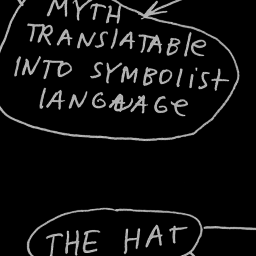 MYTH
TRANSLATABLE
INTO SYMBOLIST
LANGUAGE
THE HAT